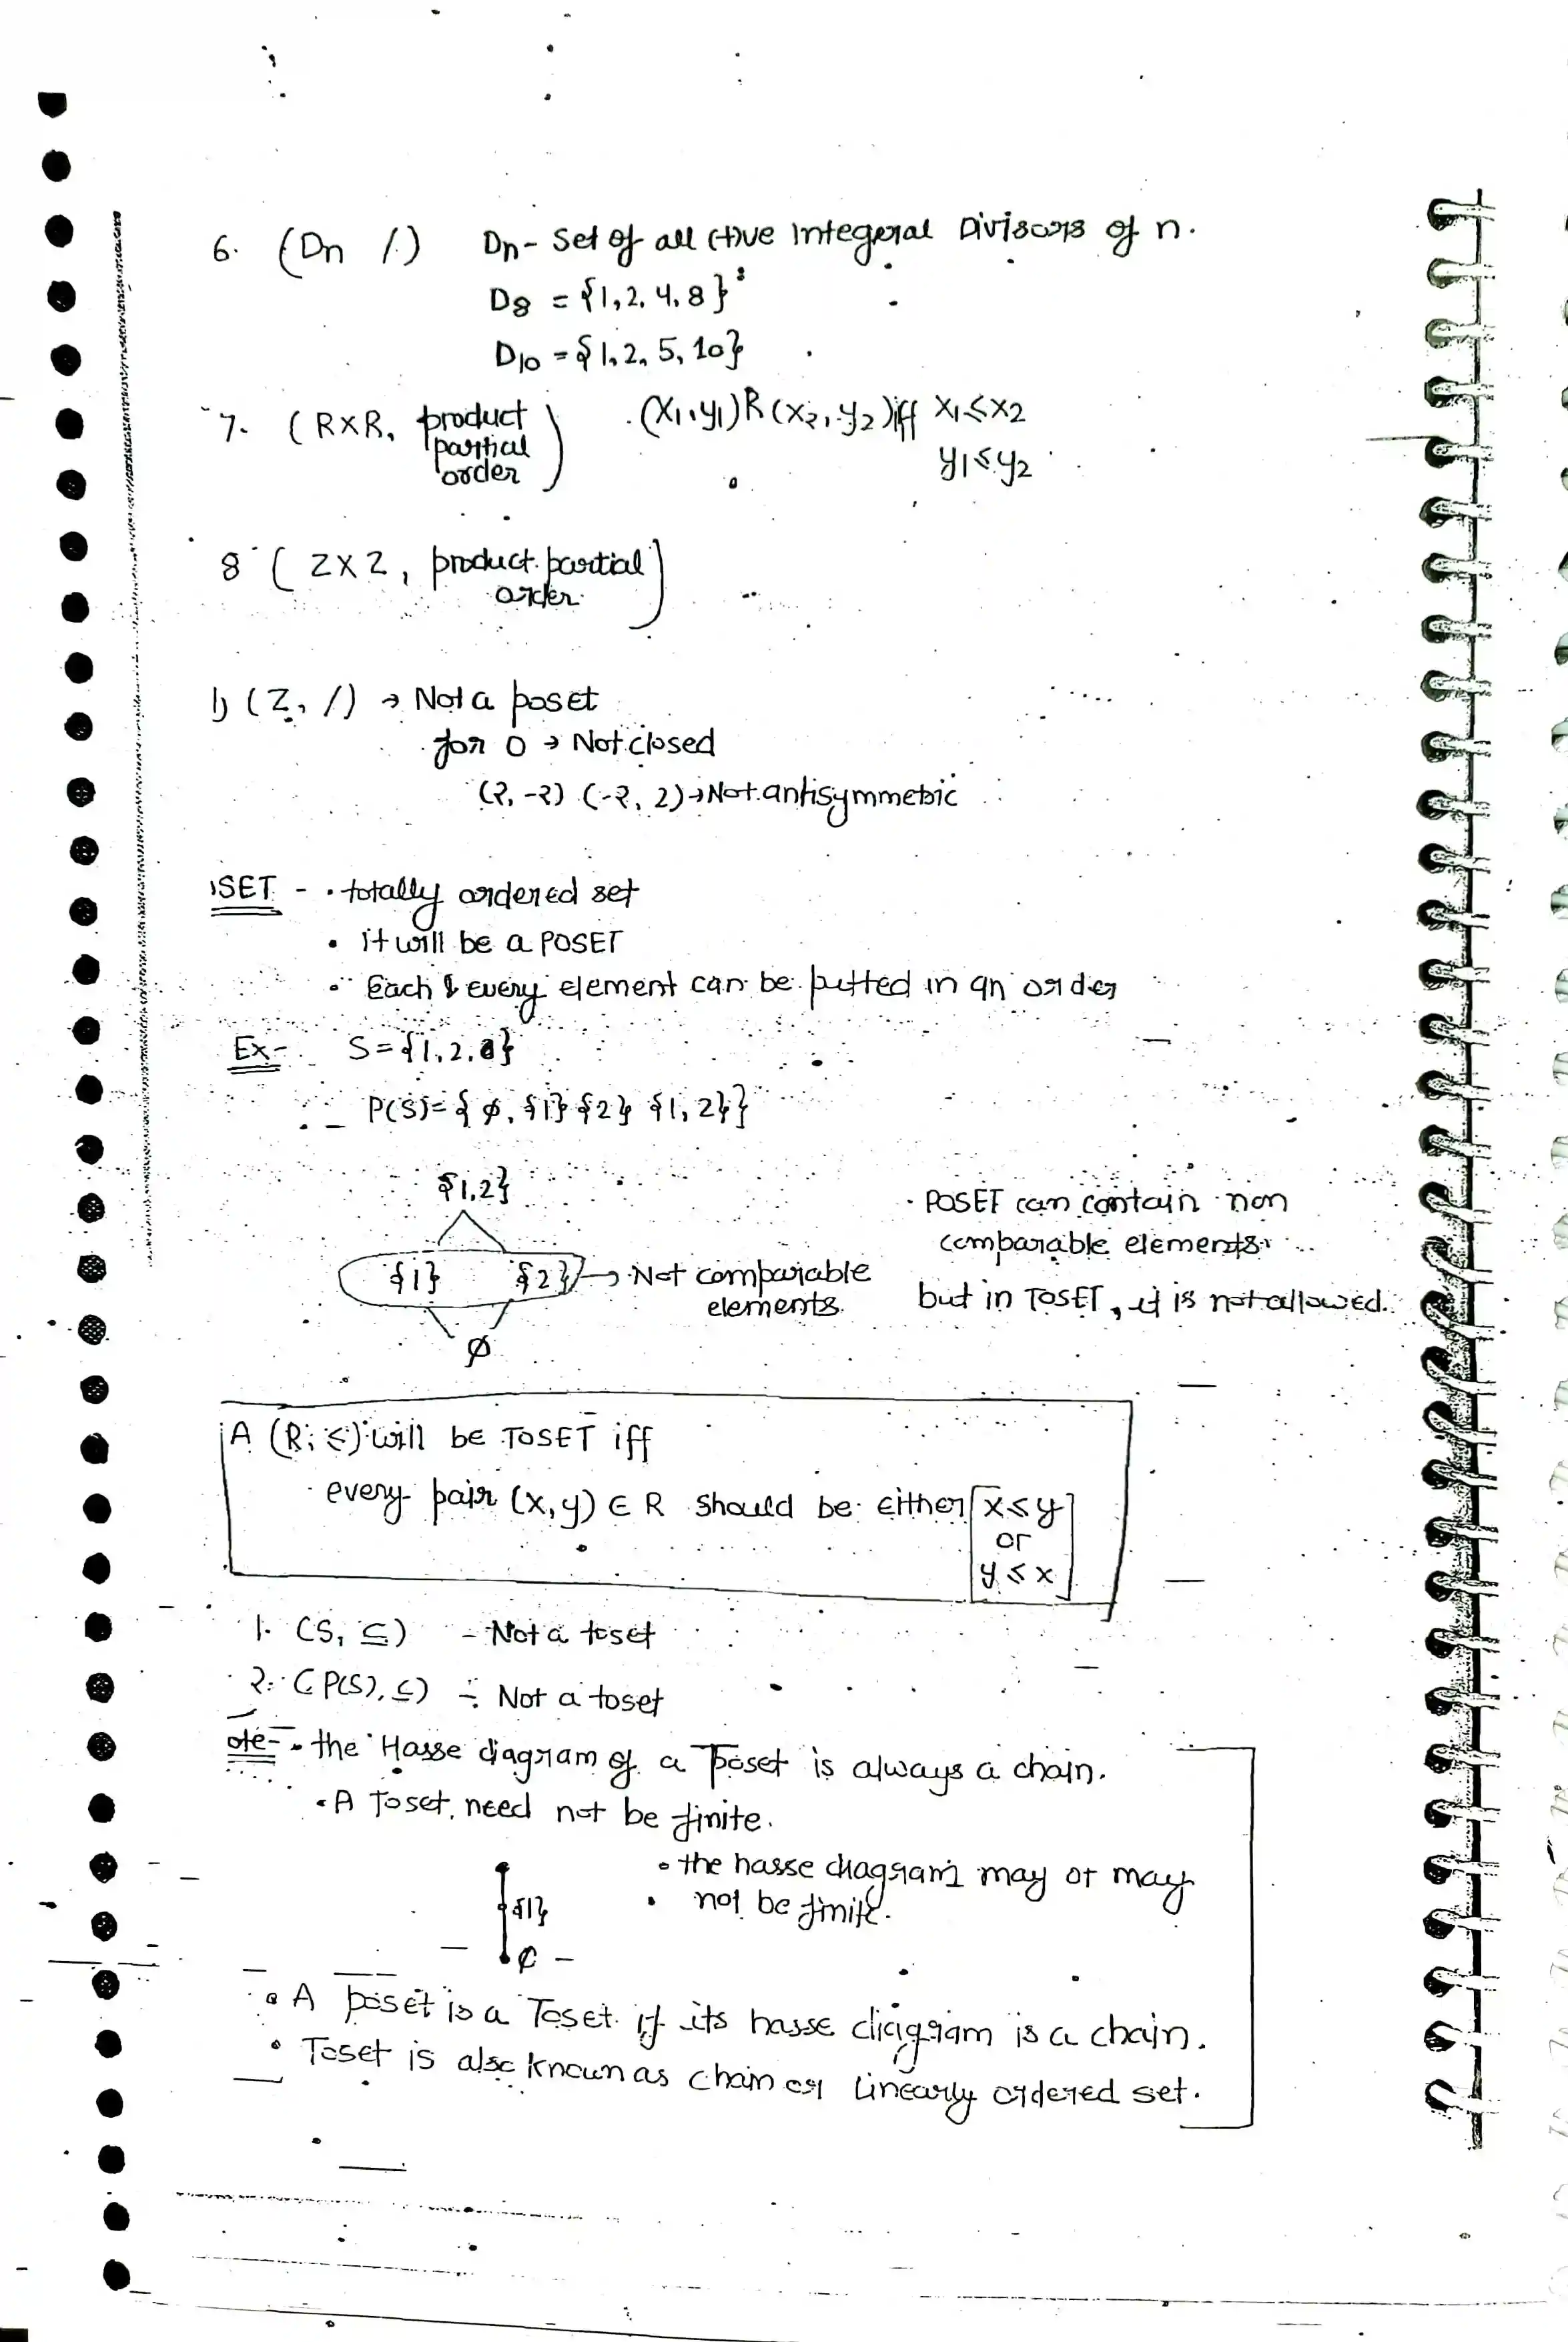 6. (Dn /) Dn - Set of all (+)ve Integeral Divisors of n.
D8 = {1, 2, 4, 8}
D10 = {1, 2, 5, 10}
7. (R×R, product partial order) (x1, y1) R (x2, y2) iff x1 ≤ x2
y1 ≤ y2
8 (Z×Z, product partial order)
1) (Z, /) → Not a poset
for 0 → Not closed
(2, -2) (-2, 2) → Not antisymmetric
SET - • totally ordered set
• it will be a POSET
• Each & every element can be putted in an order
Ex - S = {1, 2, }
P(S) = { ∅, {1} {2} {1, 2}}
{1,2}
{1} {2} → Not comparable
elements
∅
• POSET can contain non
comparable elements
but in TOSET, it is not allowed.
A (R, ≤) will be TOSET iff
every pair (x, y) ∈ R should be either x ≤ y
or
y ≤ x
1. (S, ⊆) - Not a toset
2. (P(S), ⊆) - Not a toset
ote - • the Hasse diagram of a Toset is always a chain.
• A Toset need not be finite.
• the hasse diagram may or may
not be finite.
{1}
∅
• A poset is a Toset if its hasse diagram is a chain.
• Toset is also known as chain or linearly ordered set.